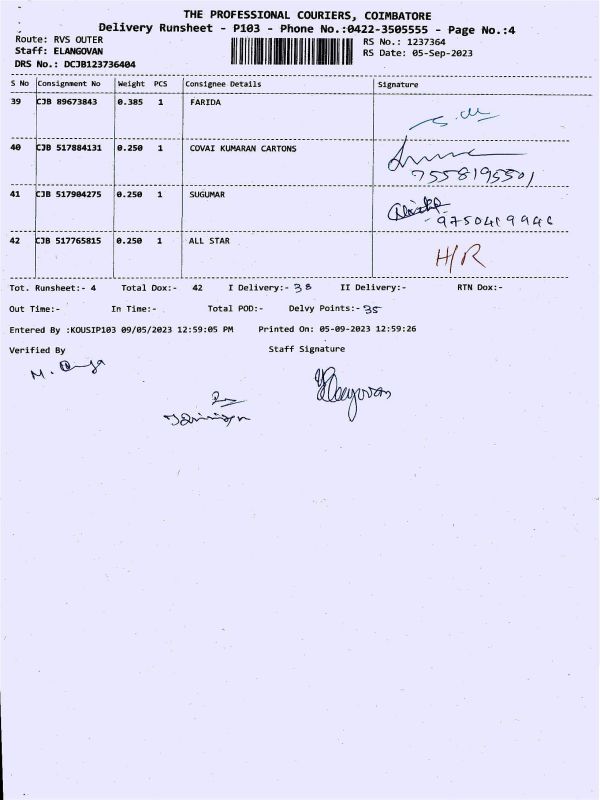 THE PROFESSIONAL COURIERS, COIMBATORE
Delivery Runsheet - P103 - Phone No.:0422-3505555 - Page No.:4
Route: RVS OUTER RS No.: 1237364
Staff: ELANGOVAN RS Date: 05-Sep-2023
DRS No.: DCJB123736404
S No Consignment No Weight PCS Consignee Details Signature
39 CJB 89673843 0.385 1 FARIDA
40 CJB 517884131 0.250 1 COVAI KUMARAN CARTONS
7558195501
41 CJB 517904275 0.250 1 SUGUMAR
9750419946
42 CJB 517765815 0.250 1 ALL STAR H/R
Tot. Runsheet:- 4 Total Dox:- 42 I Delivery:- 38 II Delivery:- RTN Dox:-
Out Time:- In Time:- Total POD:- Delvy Points:- 35
Entered By :KOUSIP103 09/05/2023 12:59:05 PM Printed On: 05-09-2023 12:59:26
Verified By Staff Signature